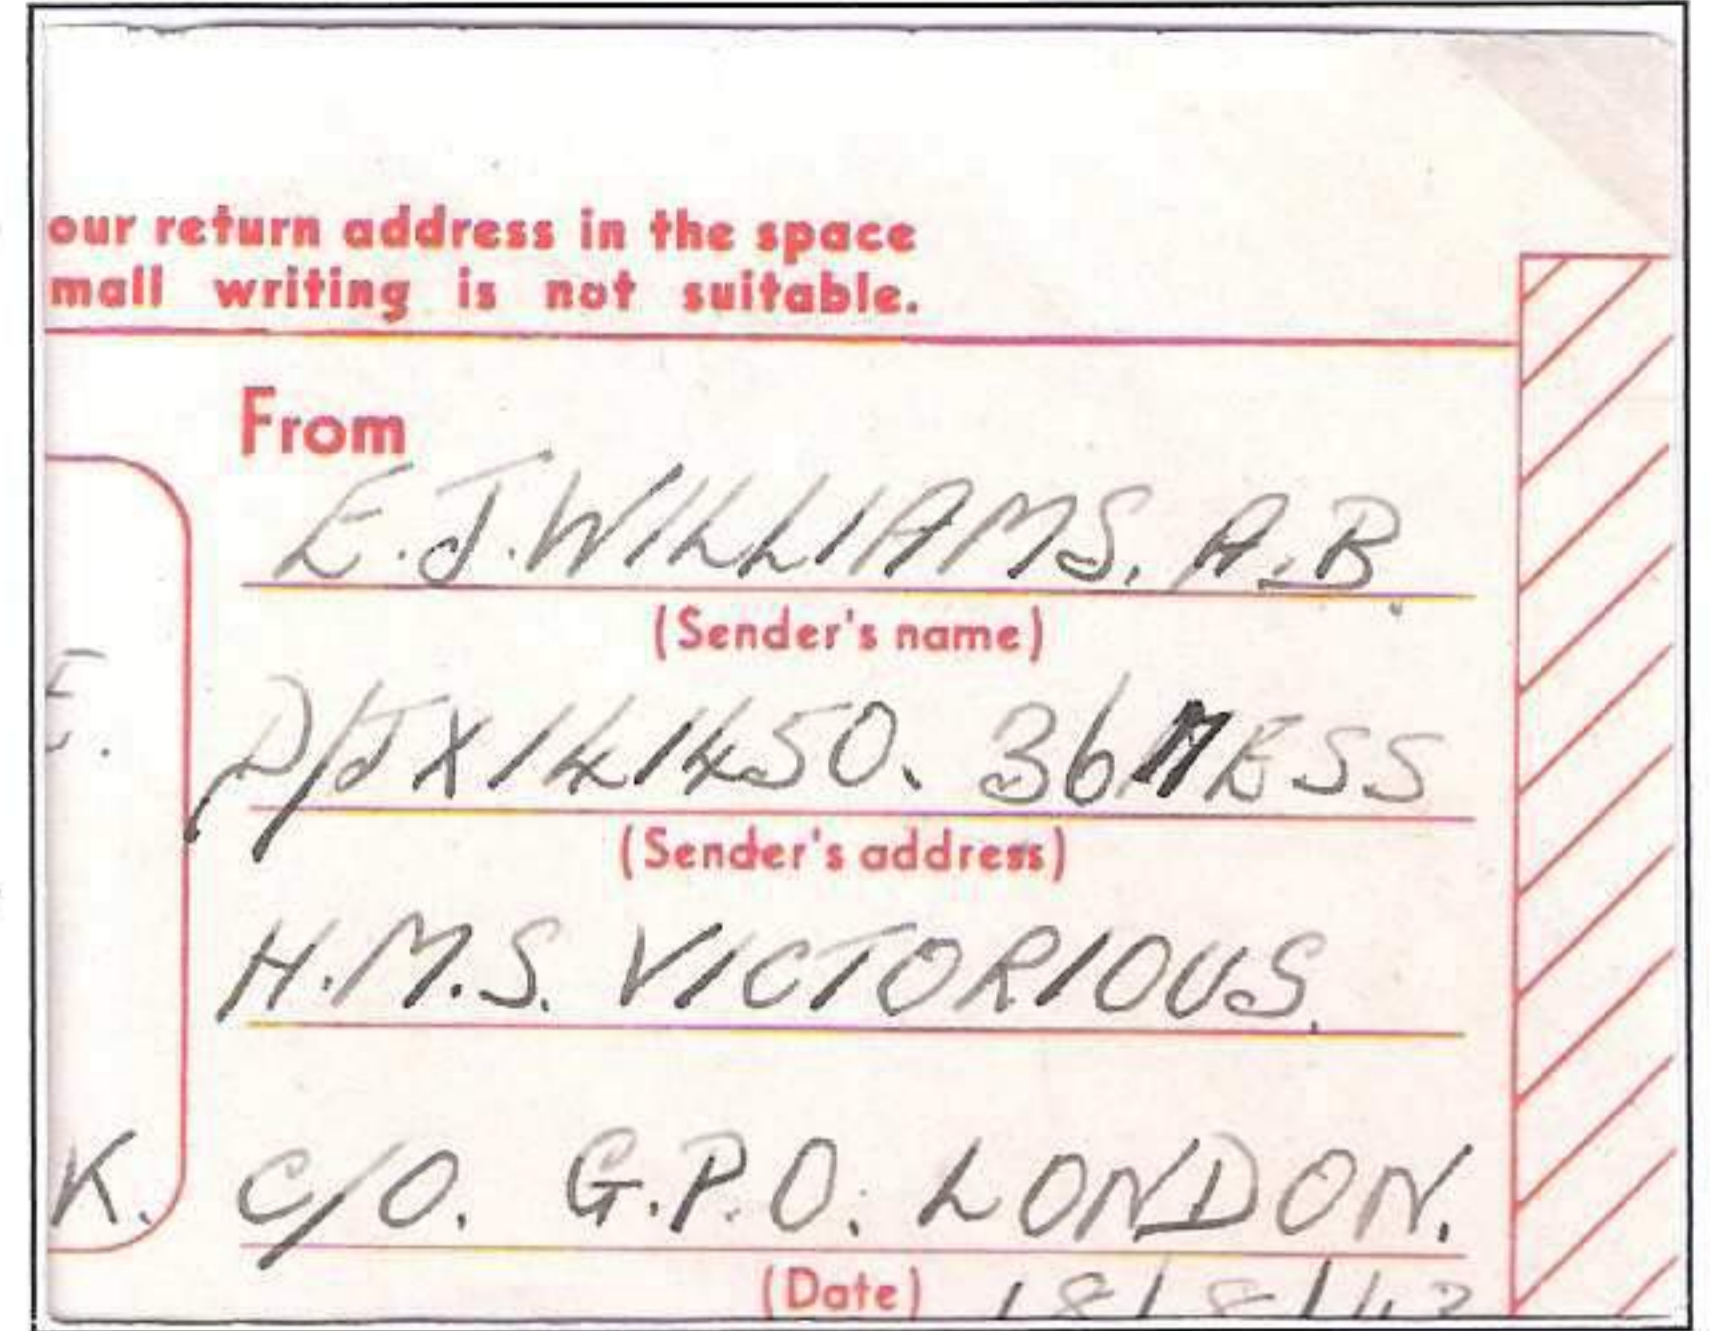 our return address in the space
mall writing is not suitable.
From
E.J. WILLIAMS. A.B.
(Sender's name)
D/JX141450. 36 MESS
(Sender's address)
H.M.S. VICTORIOUS.
K.
C/O. G.P.O. LONDON.
(Date)